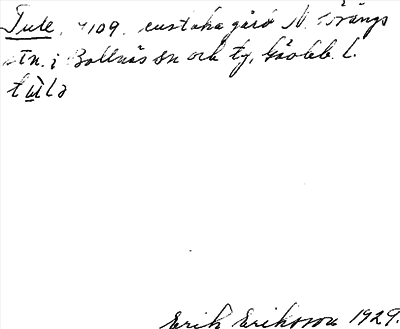 Tule, 4109. enstaka gård N. Brängs
stn. i Bollnäs sn och tg, Gävleb. l.
tu̲la
Erik Eriksson 1929.